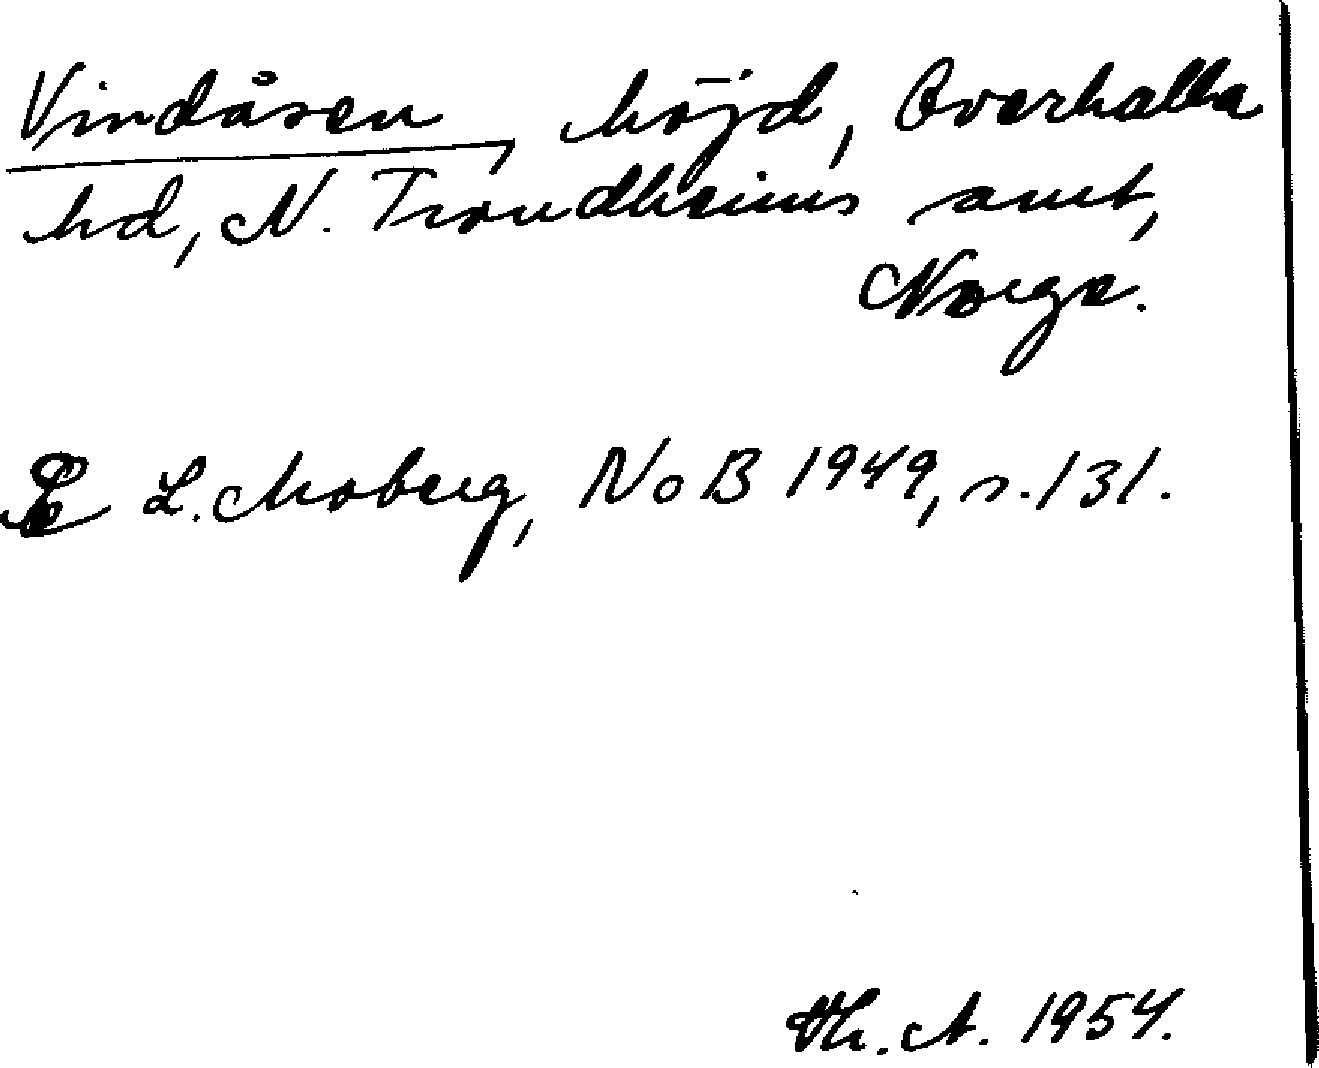 Vindåsen, höjd, Overhalla
hd, N. Trondheims amt,
Norge.
L. Moberg, NoB 1949, s. 131.
Th. A. 1954.